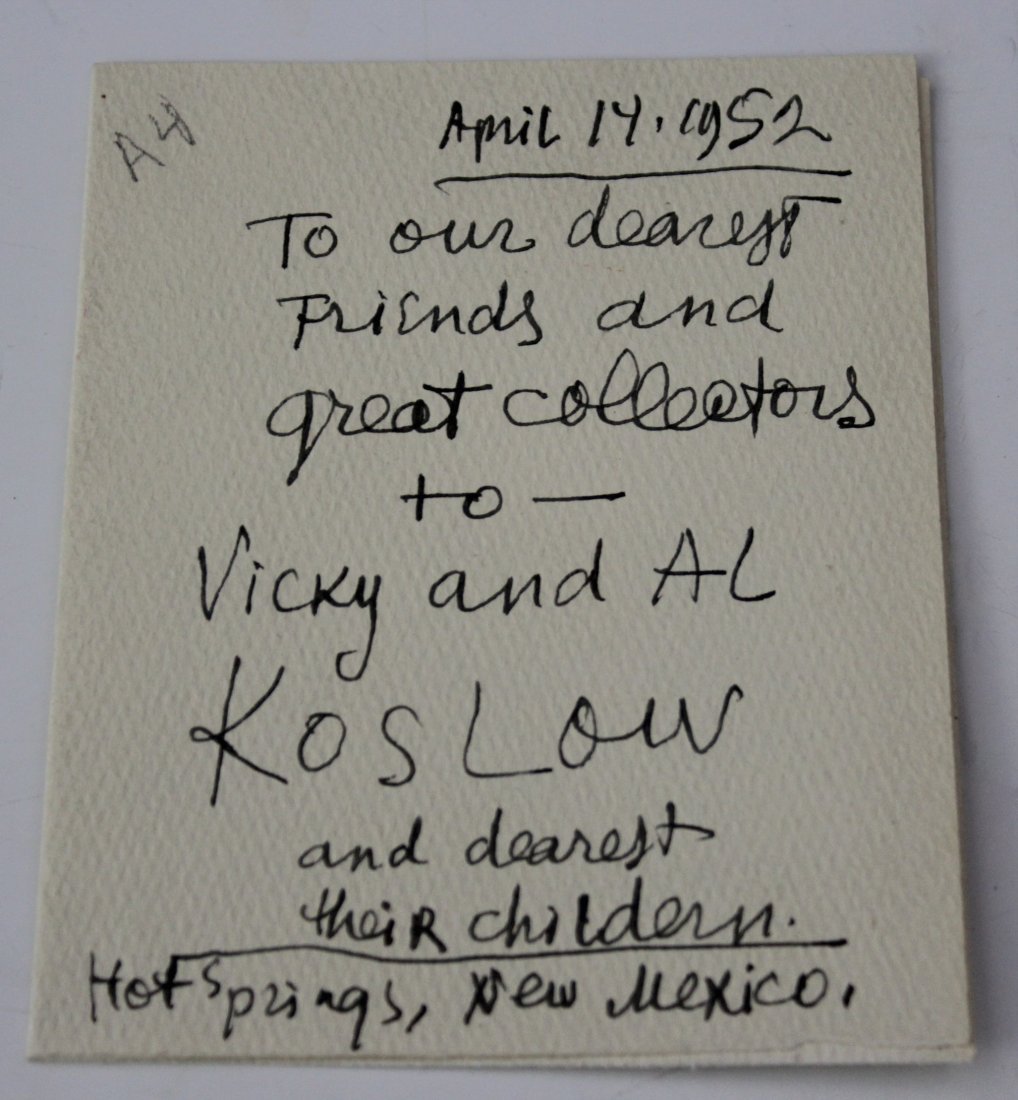 A4
April 14. 1952
To our dearest
Friends and
great collectors
to —
Vicky and AL
KOSLOW
and dearest
their childern.
Hot Springs, New Mexico.